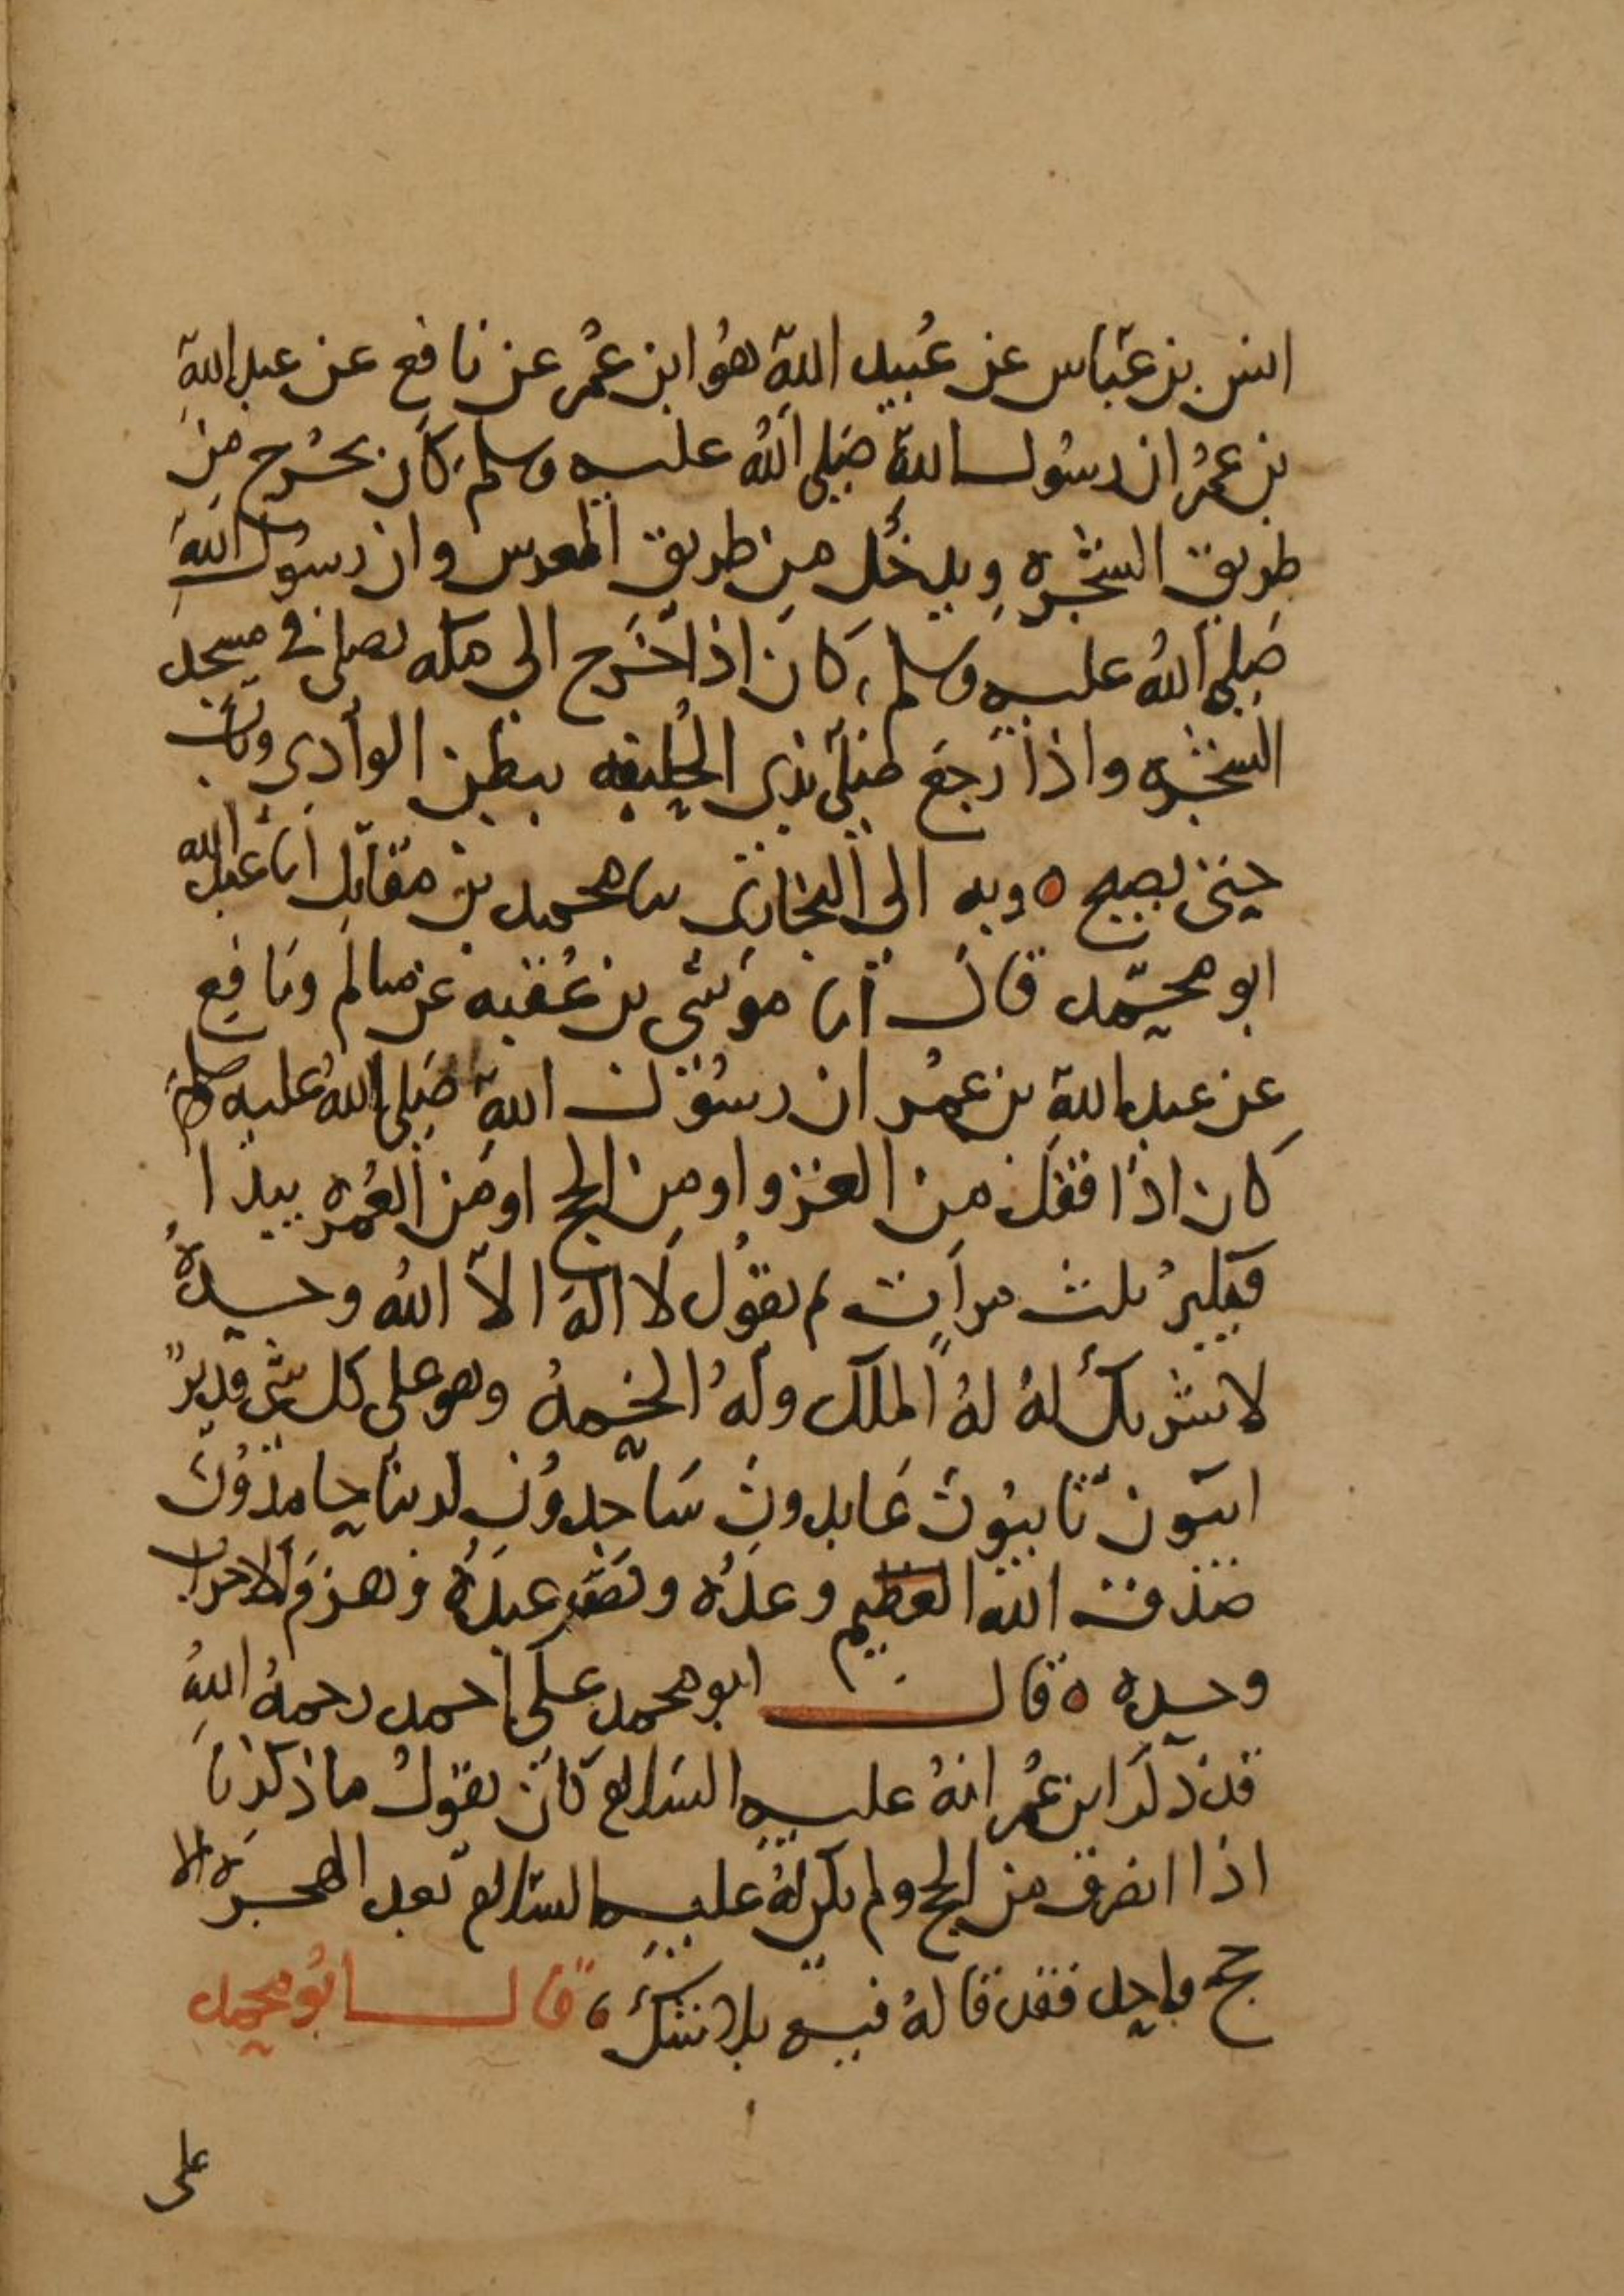 انس بن عباس عن عُبيد اللهِ هوُ ابن عمُر عن نافع عن عبد اللهِ
بن عمُر ان رسُول اللهِ صَلى اللهُ عليه وسلم كان يخرُج من
طريق الشجره ويدخُل مِن طريق المعرس وان رسول اللهِ
صَلى اللهُ عليه وسلم، كانَ اذا خَرج الى مكه يصلى في مسجد
الشجره واذا رجعَ صَلى بذى الحُليفه ببطن الوادى وبات
حتى يصبح ٥ وبه الى البخارى نا محمد بن مقاتل انا عبد الله
ابو محمّد قال انا موسَى بن عُقبه عن سالم ونافع
عن عبد اللهِ بن عمُر ان رسُول اللهِ صَلى اللهُ عليه وسلم
كان اذا قفل من الغزو او مِن الحج او مِن العُمره يبدا
فيكبرُ ثلث مراتٍ ثم يقوُل لَا الهَ الاّ اللهُ وحدهُ
لا شريكَ لهُ لهُ الملك ولهُ الحَمدُ وهو على كل شى قديرٌ
ايبون تايبُون عَابدون سَاجدوُن لربنا حامدُون
صَدق الله العظيم وعدُه ونصَر عبدَهُ وهزمَ الاحزاب
وحده ٥ قال ابو محمد على احمد رحمهُ اللهُ
قد ذكَر ابن عمُر انهُ عليه السَلام كانَ يقولُ ما ذكرنا
اذا انصرف من الحج ولم يكن لهُ عليه السَلام بعد الهجرَه الا
حج واحد فقد قالهُ فيه بلا شكَ، قال ابُو محمد
على